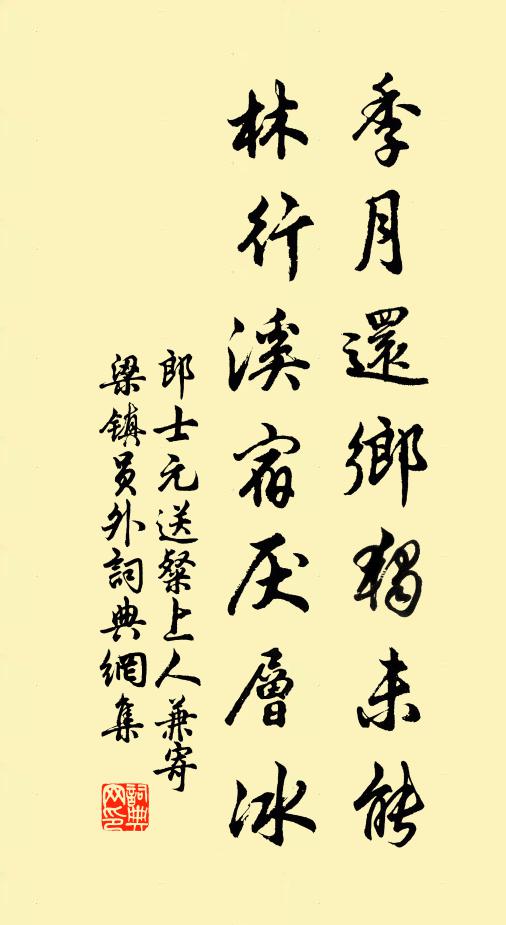 季月還鄉獨未能
林行溪宿厌層冰
郎士元送粲上人兼寄
梁镇员外詞典網集
詞典
网印